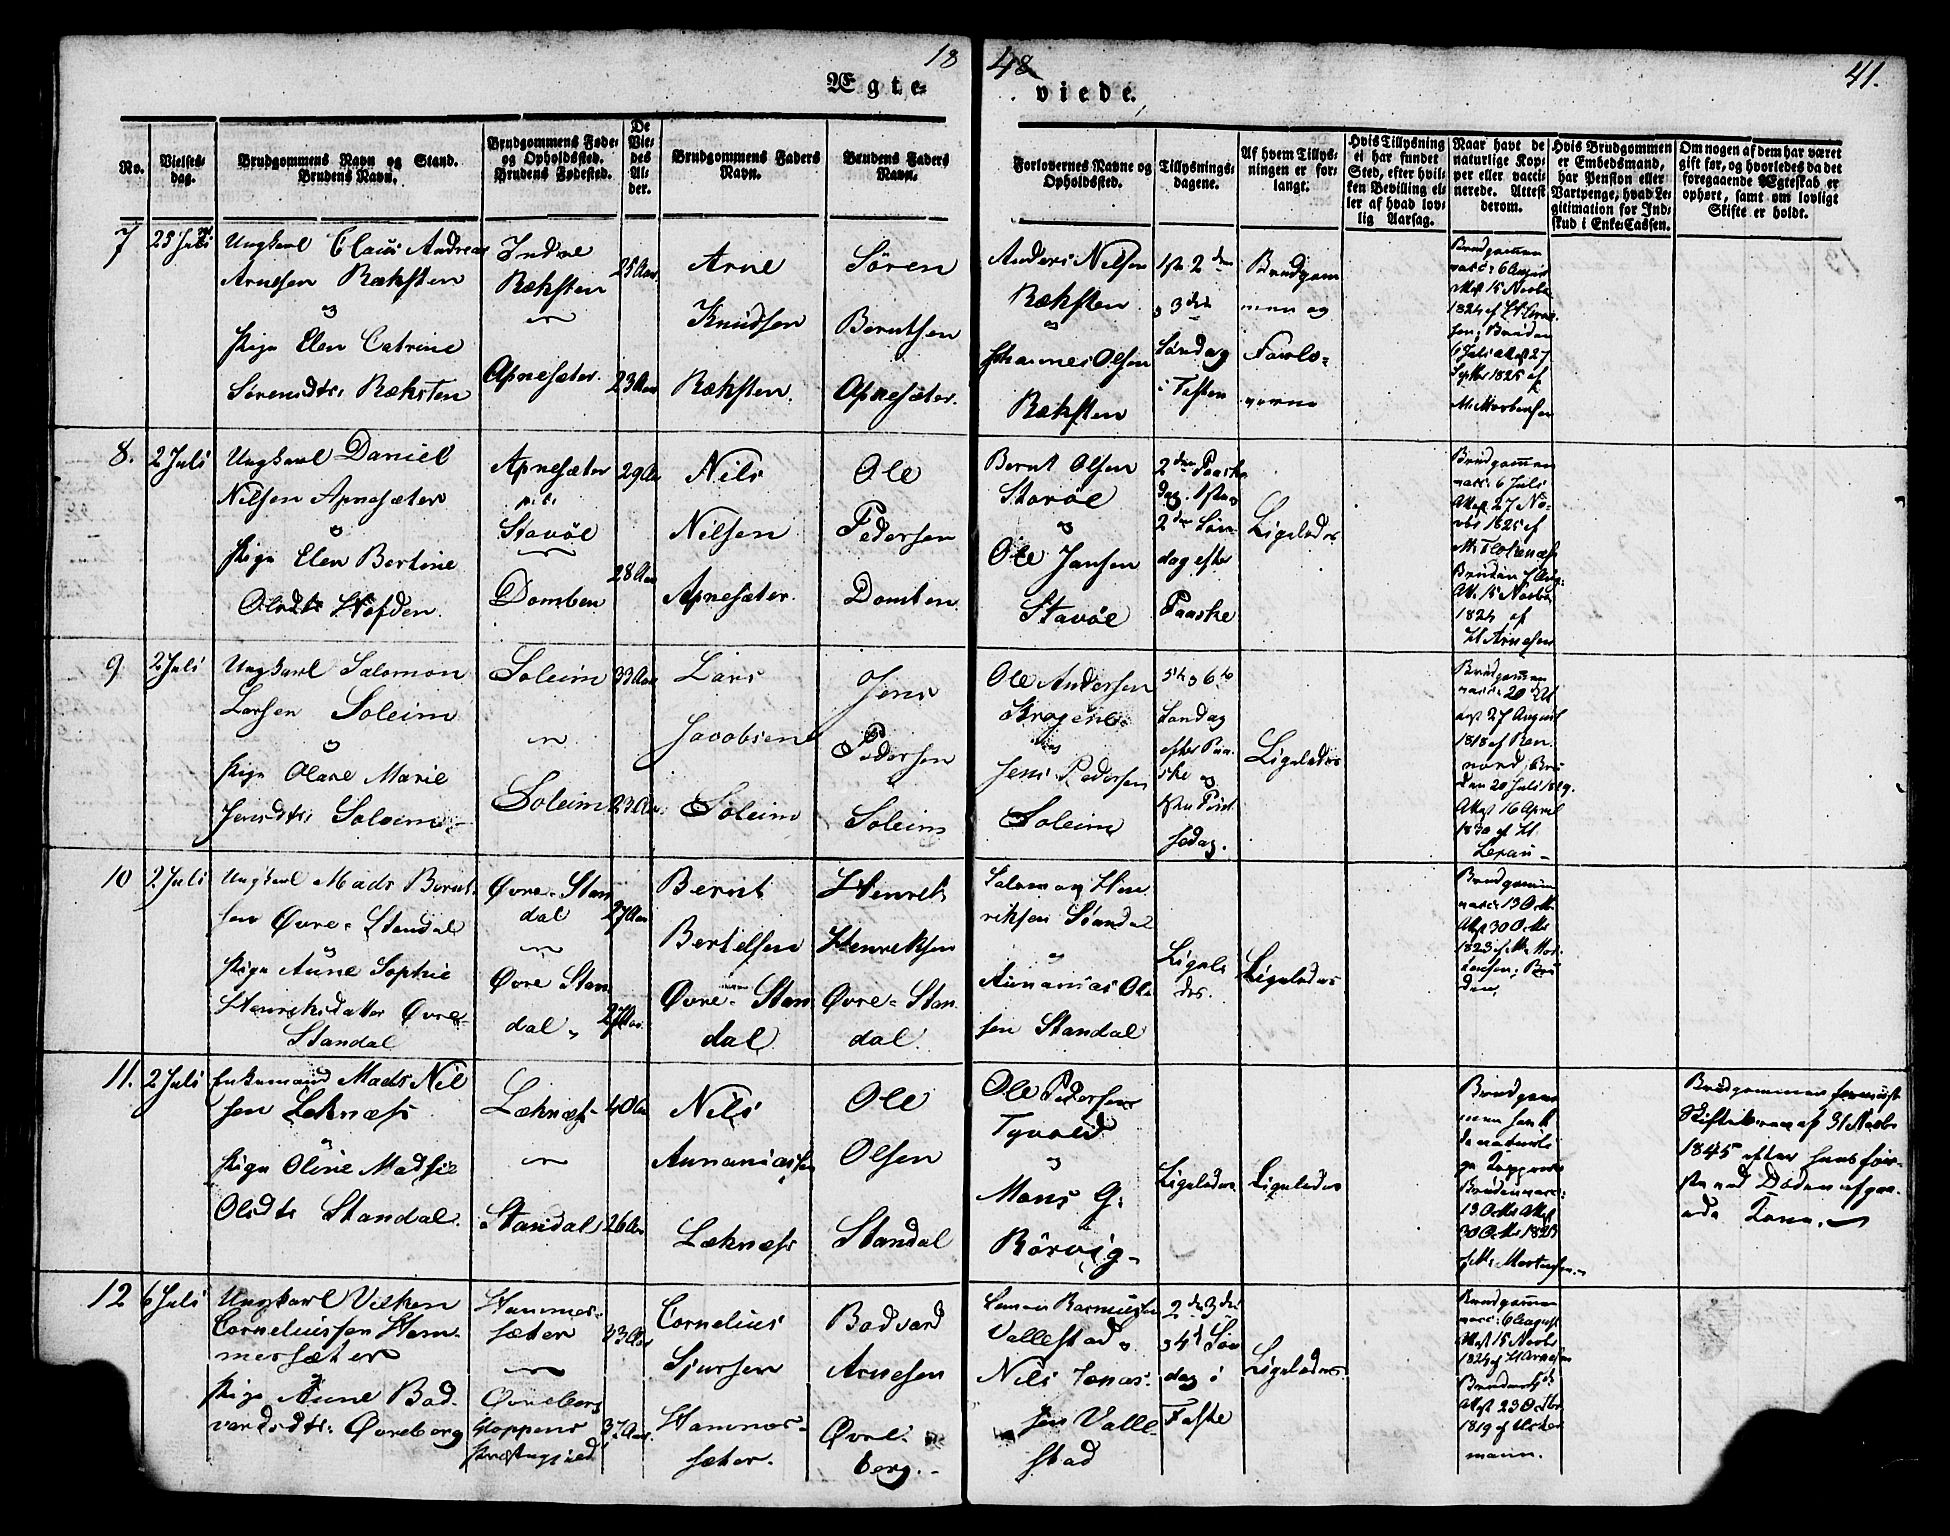 18 48
41.
Ægte=
viede.
No.
Vielses-
dag.
Brudgommens Navn og Stand.
Brudens Navn.
Brudgommens Føde-
og Opholdssted.
Brudens Fødested.
De
Vie-
des
Al-
der.
Brudgommens Faders
Navn.
Brudens Faders
Navn.
Forlovernes Navne og
Opholdssted.
Tillysnings-
dagene.
Af hvem Tillys-
ningen er for-
langt.
Hvis Tillysning
ei har fundet
Sted, efter hvil-
ken Bevilling el-
ler af hvad lov-
lig Aarsag.
Naar havt de
naturlige Kop-
per eller vacci-
nerede. Attest
derom.
Hvis Brudgommen
er Embedsmand,
har Pension eller
Vartpenge, hvad Le-
gitimation for Ind-
skud i Enke-Cassen.
Om nogen af dem har været
gift før, og hvorledes da det
foregaaende Ægteskab er
ophørt, samt om lovligt
Skifte er holdt.
7
Ungkarl Claus Andreas
Arnesen Ræksten
og
Pige Elen Catrine
Sørensdtr: Ræksten
Indre
Ræksten
Apnesæter.
25 Aar
23 Aar
Arne
Knudsen
Ræksten.
Søren
Berntsen
Apnesæter.
Anders Nilsen
Ræksten
og
Johannes Olsen
Ræksten
1ste 2den
og 3die
Søndag
i Fasten
Brudgom
men og
Forlo-
verne
Brudgommen
vacc: 6 August
Attest 15 Novbr
1824 af H. Arne
sen; Bruden
6 Juli attest 27
Septbr 1825 af
M. Mortensen
8.
2 Juli
Ungkarl Daniel
Nilsen Apnesæter
og
Pige Elen Bertine
Olsdtr Hofden.
Apnesæter
Stavøe
Domben
29 Aar
28 Aar
Nils
Nilsen
Apnesæter.
Ole
Pedersen
Domben.
Bernt Olsen
Stavöe
og
Ole Jansen
Stavöe
2den Paaske
dag, 1ste og
2den Søn-
dag efter
Paaske
Ligeledes
Brudgommen
vacc: 6 Juli
Attest 27 No-
vbr 1825 af
Bruden 7 Aug:
Att. 15 Novbr
1824 af
H Arnesen
9
2 Juli
Ungkarl Salomon
Larsen Soleim
og
Pige Olave Marie
Jensdtr: Soleim
Soleim
Soleim
33 Aar
23 Aar
Lars
Jacobsen
Soleim
Jens
Pedersen
Soleim
Ole Andersen
og
Jens Pedersen
Soleim
5te og 6te
Søndag
efter Paa-
ske og
1ste Pint-
sedag.
Ligeledes
Brudgommen
1818 af
den 20 Juli 1829.
Attest 16 April
1830 af H.
10
2 Juli
Ungkarl Mads Bernt-
sen Øvre-Standal
og
Pige Anne Sophie
Henriksdatter Øvre-
Standal
Øvre-Stan
dal
Øvre Stan
dal
27 Aar
27 Aar.
Bernt
Bertelsen
Øvre-Stan
dal
Henrek
Henreksen
Øvre-Stan
dal.
Salamon Hen
riksen Standal
og
Annanias Ol
sen Standal
Ligele
des.
Ligeledes
Brudgommen
vacc: 13 Octbr
Attest 30 Octbr
1823 af M. Mor
tensen; Bru
den,
11.
2 Juli
Enkemand Mads Nil
sen Leknæss
og
Pige Oline Madsie
Olsdtr Standal.
Læknæss
Standal
40 Aar
26 Aar
Nils
Annaniassen
Læknæss
Ole
Olsen
Standal
Ole Pedersen
Tyvold
og
Mons G:
Rörvig-
Ligeledes
Ligeledes
Brudgom
men havt
de naturli
ge Kopper
Bruden vacc:
13 Octbr Attest
30 Octbr 1823
af M. Mortensen.
Brudgommen foreviist
1845 efter hans før-
ste ved Døden afgaa-
ede Kone.
12
6 Juli
Ungkarl Vilken
Corneliussen Ham-
mersæter
og
Pige Anne Bod-
vardsdtr: Øvreberg
Hammer-
sæter
Øvreberg
Gloppens
Præstegjeld
33 Aar
37 Aar.
Cornelius
Sjursen
Hammer-
sæter.
Bodvard
Arnesen
Øvre-
berg.-
Rasmussen
Vallestad og
Nils Jonas-
sen Valle-
stad
2den 3die
og 4de Søn
dag i
Faste
Ligeledes
Brudgommen
vacc: 6 August
Attest 15 Novbr
1824 af H Arnesen
Attest 23 Octbr
1819 af
mann.